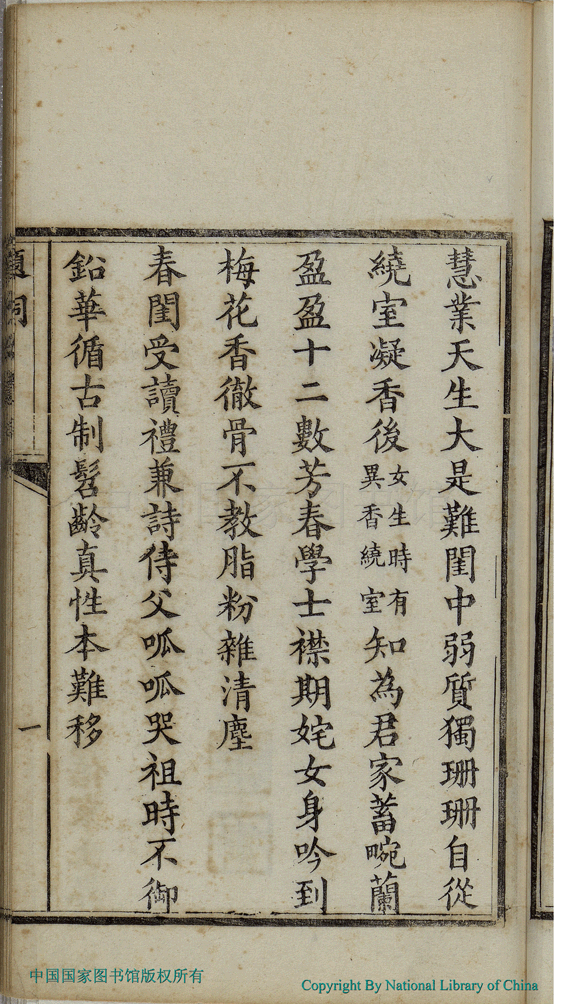 慧業天生大是難閨中弱質獨珊珊自從
繞室凝香後女生時有異香繞室知為君家蓄畹蘭
盈盈十二數芳春學士襟期姹女身吟到
梅花香徹骨不教脂粉雜清塵
春閨受讀禮兼詩侍父呱呱哭祖時不御
鉛華循古制髫齡真性本難移
題詞
一
中国国家图书馆版权所有
Copyright By National Library of China